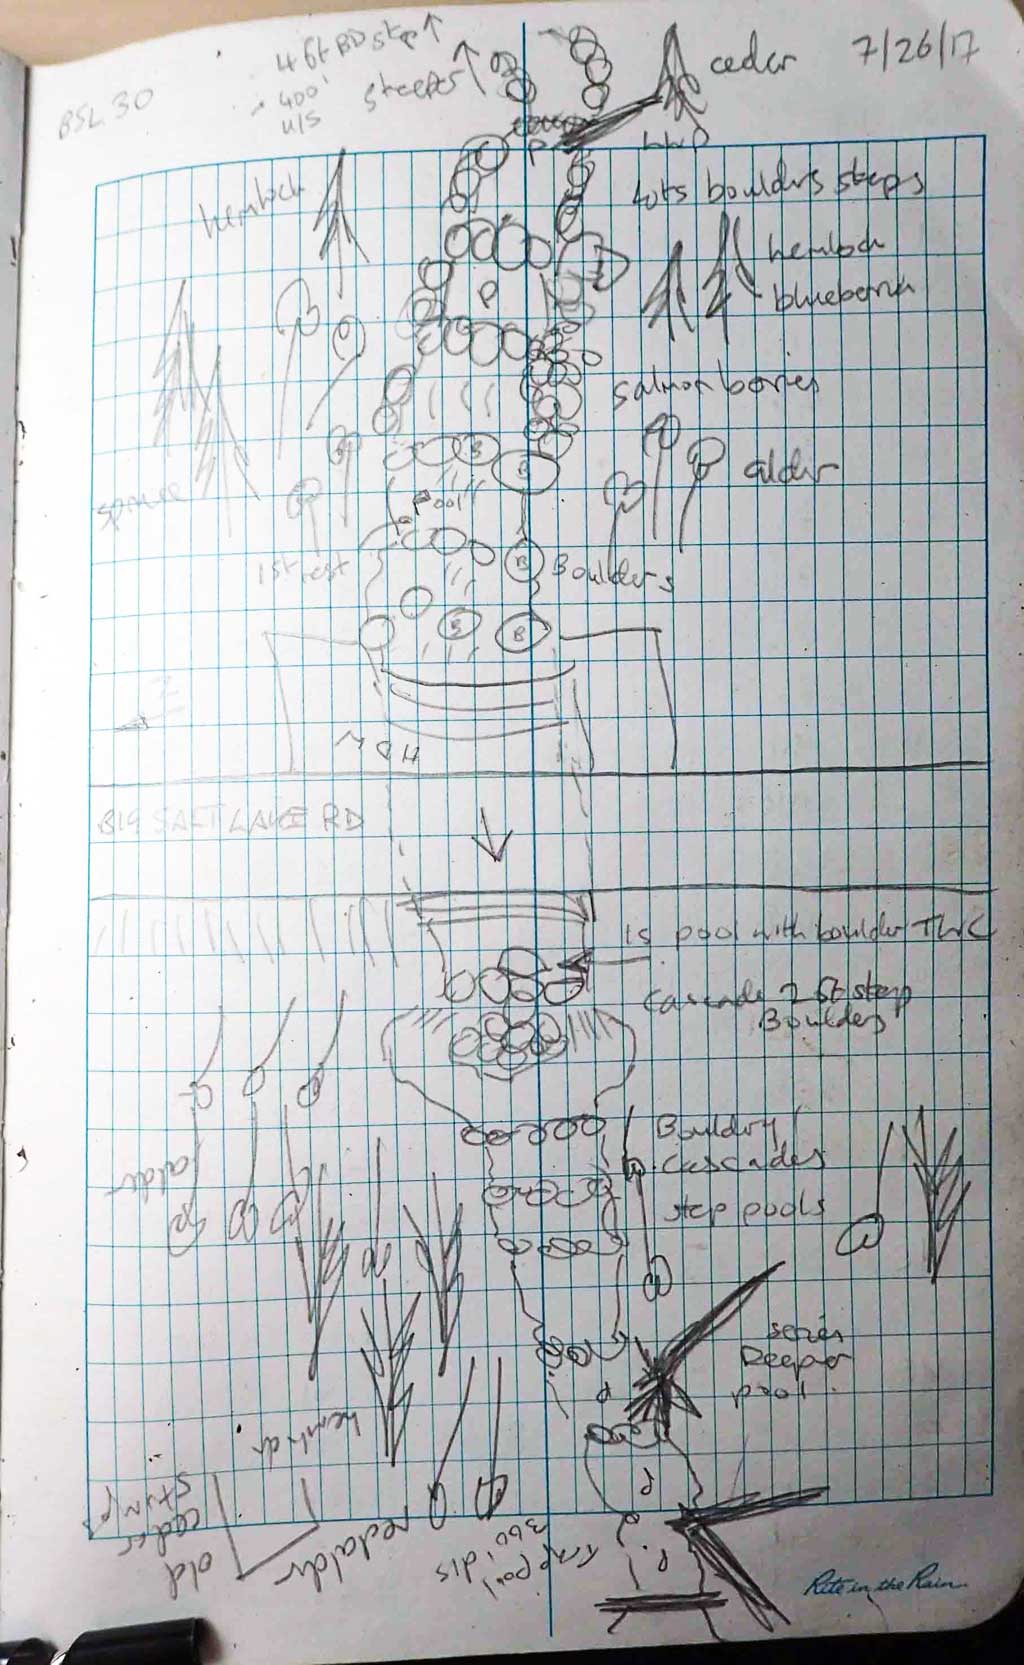 BSL 30
4 ft BD step ↑
~ 400'
u/s
steeper ↑
cedar
7/26/17
P
hemlock
lots boulders steps
hemlock
P
salmon berries
B
B
alder
spruce
Pool
B
Boulders
B
B
BIG SALT LAKE RD
pool with boulder TWC
Cascade 2 ft step
Boulders
Bouldry/
cascades
step pools
alder
series
Deeper
pool
P
hemlock
P
old
cedar
stumps
red alder
360'
P
Rite in the Rain